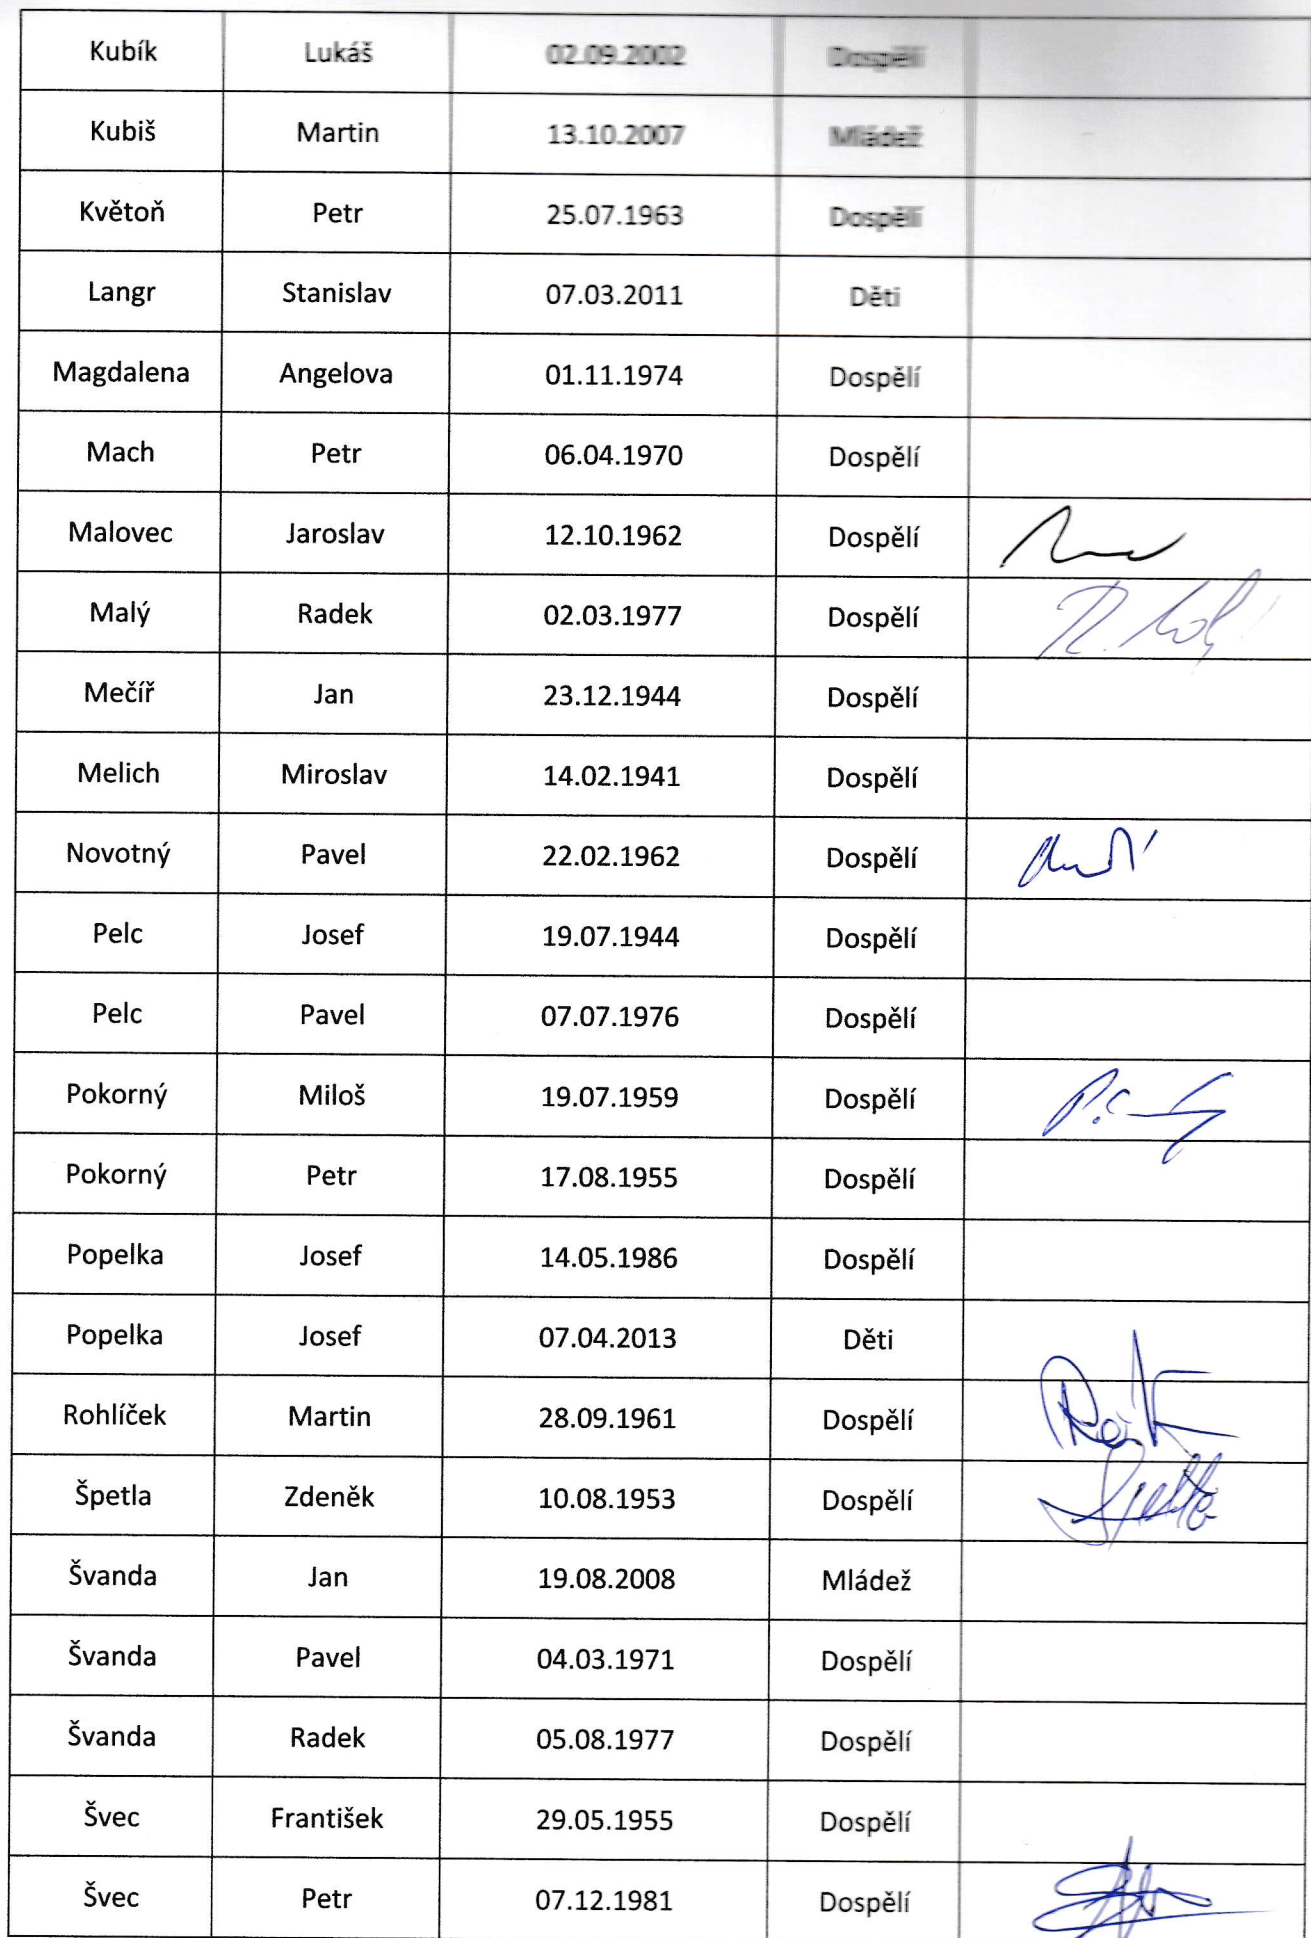 Kubík Lukáš 02.09.2002 Dospělí
Kubiš Martin 13.10.2007 Mládež
Květoň Petr 25.07.1963 Dospělí
Langr Stanislav 07.03.2011 Děti
Magdalena Angelova 01.11.1974 Dospělí
Mach Petr 06.04.1970 Dospělí
Malovec Jaroslav 12.10.1962 Dospělí
Malý Radek 02.03.1977 Dospělí
Mečíř Jan 23.12.1944 Dospělí
Melich Miroslav 14.02.1941 Dospělí
Novotný Pavel 22.02.1962 Dospělí
Pelc Josef 19.07.1944 Dospělí
Pelc Pavel 07.07.1976 Dospělí
Pokorný Miloš 19.07.1959 Dospělí
Pokorný Petr 17.08.1955 Dospělí
Popelka Josef 14.05.1986 Dospělí
Popelka Josef 07.04.2013 Děti
Rohlíček Martin 28.09.1961 Dospělí
Špetla Zdeněk 10.08.1953 Dospělí
Švanda Jan 19.08.2008 Mládež
Švanda Pavel 04.03.1971 Dospělí
Švanda Radek 05.08.1977 Dospělí
Švec František 29.05.1955 Dospělí
Švec Petr 07.12.1981 Dospělí